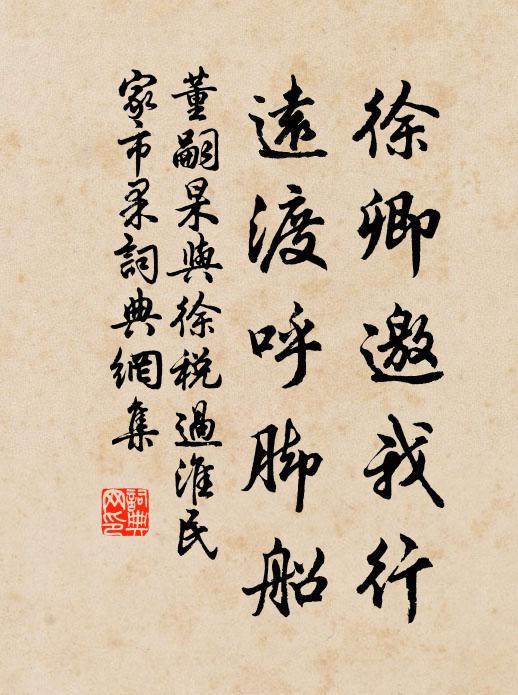 徐卿邀我行
遠渡呼腳船
董嗣杲與徐税過淮民
家市果詞典網集
詞典網印